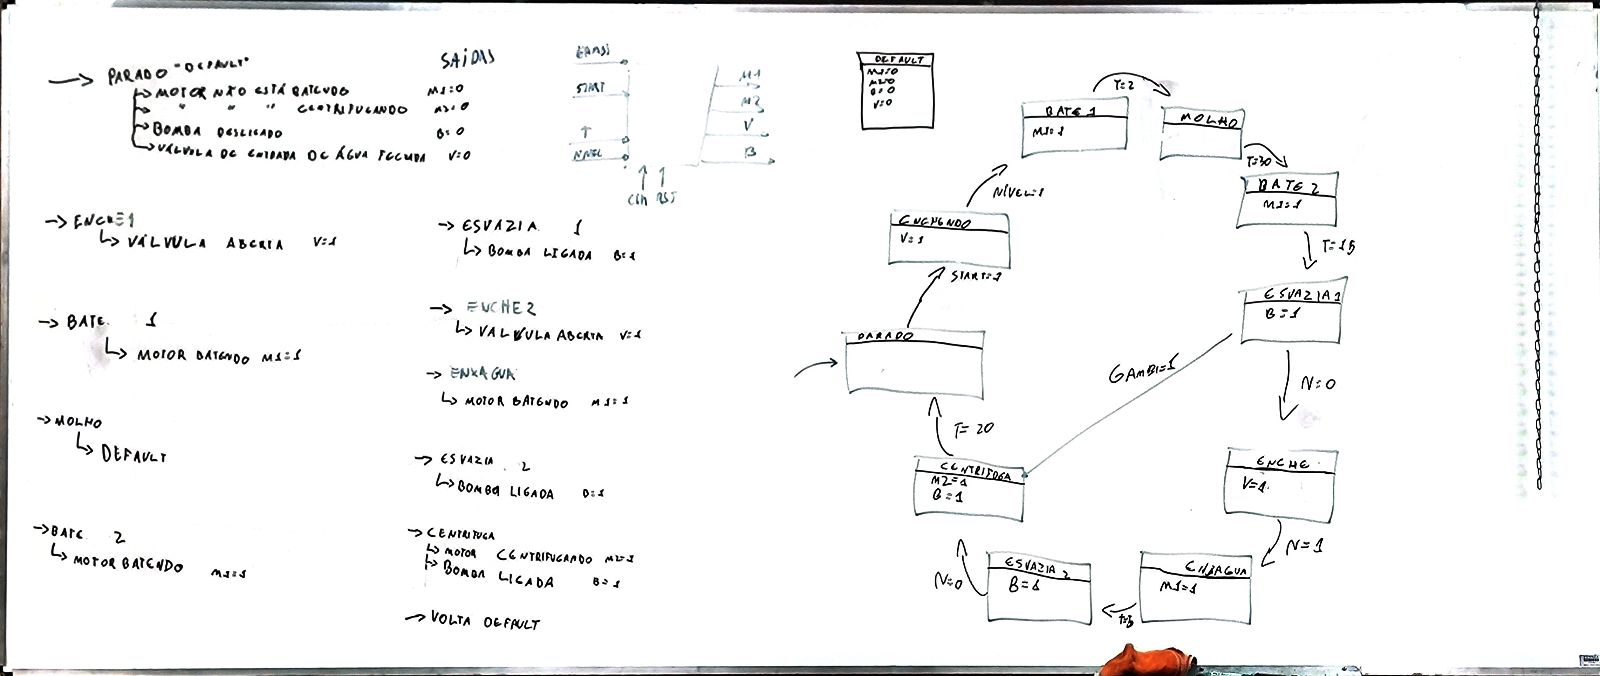 PARADO "DEFAULT"
SAÍDAS
MOTOR NÃO ESTÁ BATENDO M1=0
" " " CENTRIFUGANDO M2=0
BOMBA DESLIGADO B=0
VÁLVULA DE ENTRADA DE ÁGUA FECHADA V=0
START
T
CLK RST
M1
M2
V
B
ENCHE1
VÁLVULA ABERTA V=1
BATE 1
MOTOR BATENDO M1=1
MOLHO
DEFAULT
BATE 2
MOTOR BATENDO M1=1
ESVAZIA 1
BOMBA LIGADA B=1
ENCHE2
VALVULA ABERTA V=1
ENXAGUA
MOTOR BATENDO M1=1
ESVAZIA 2
BOMBA LIGADA B=1
CENTRIFUGA
MOTOR CENTRIFUGANDO M2=1
BOMBA LIGADA B=1
VOLTA DEFAULT
DEFAULT
M1=0
M2=0
B=0
V=0
BATE 1
M1=1
T=2
MOLHO
T=30
BATE 2
M1=1
T=15
ESVAZIA1
B=1
N=0
ENCHE
V=1
N=1
ENXAGUA
M1=1
ESVAZIA 2
B=1
N=0
CENTRIFUGA
M2=1
B=1
GAMBI=1
T=20
PARADO
START=1
ENCHENDO
V=1
NÍVEL=1